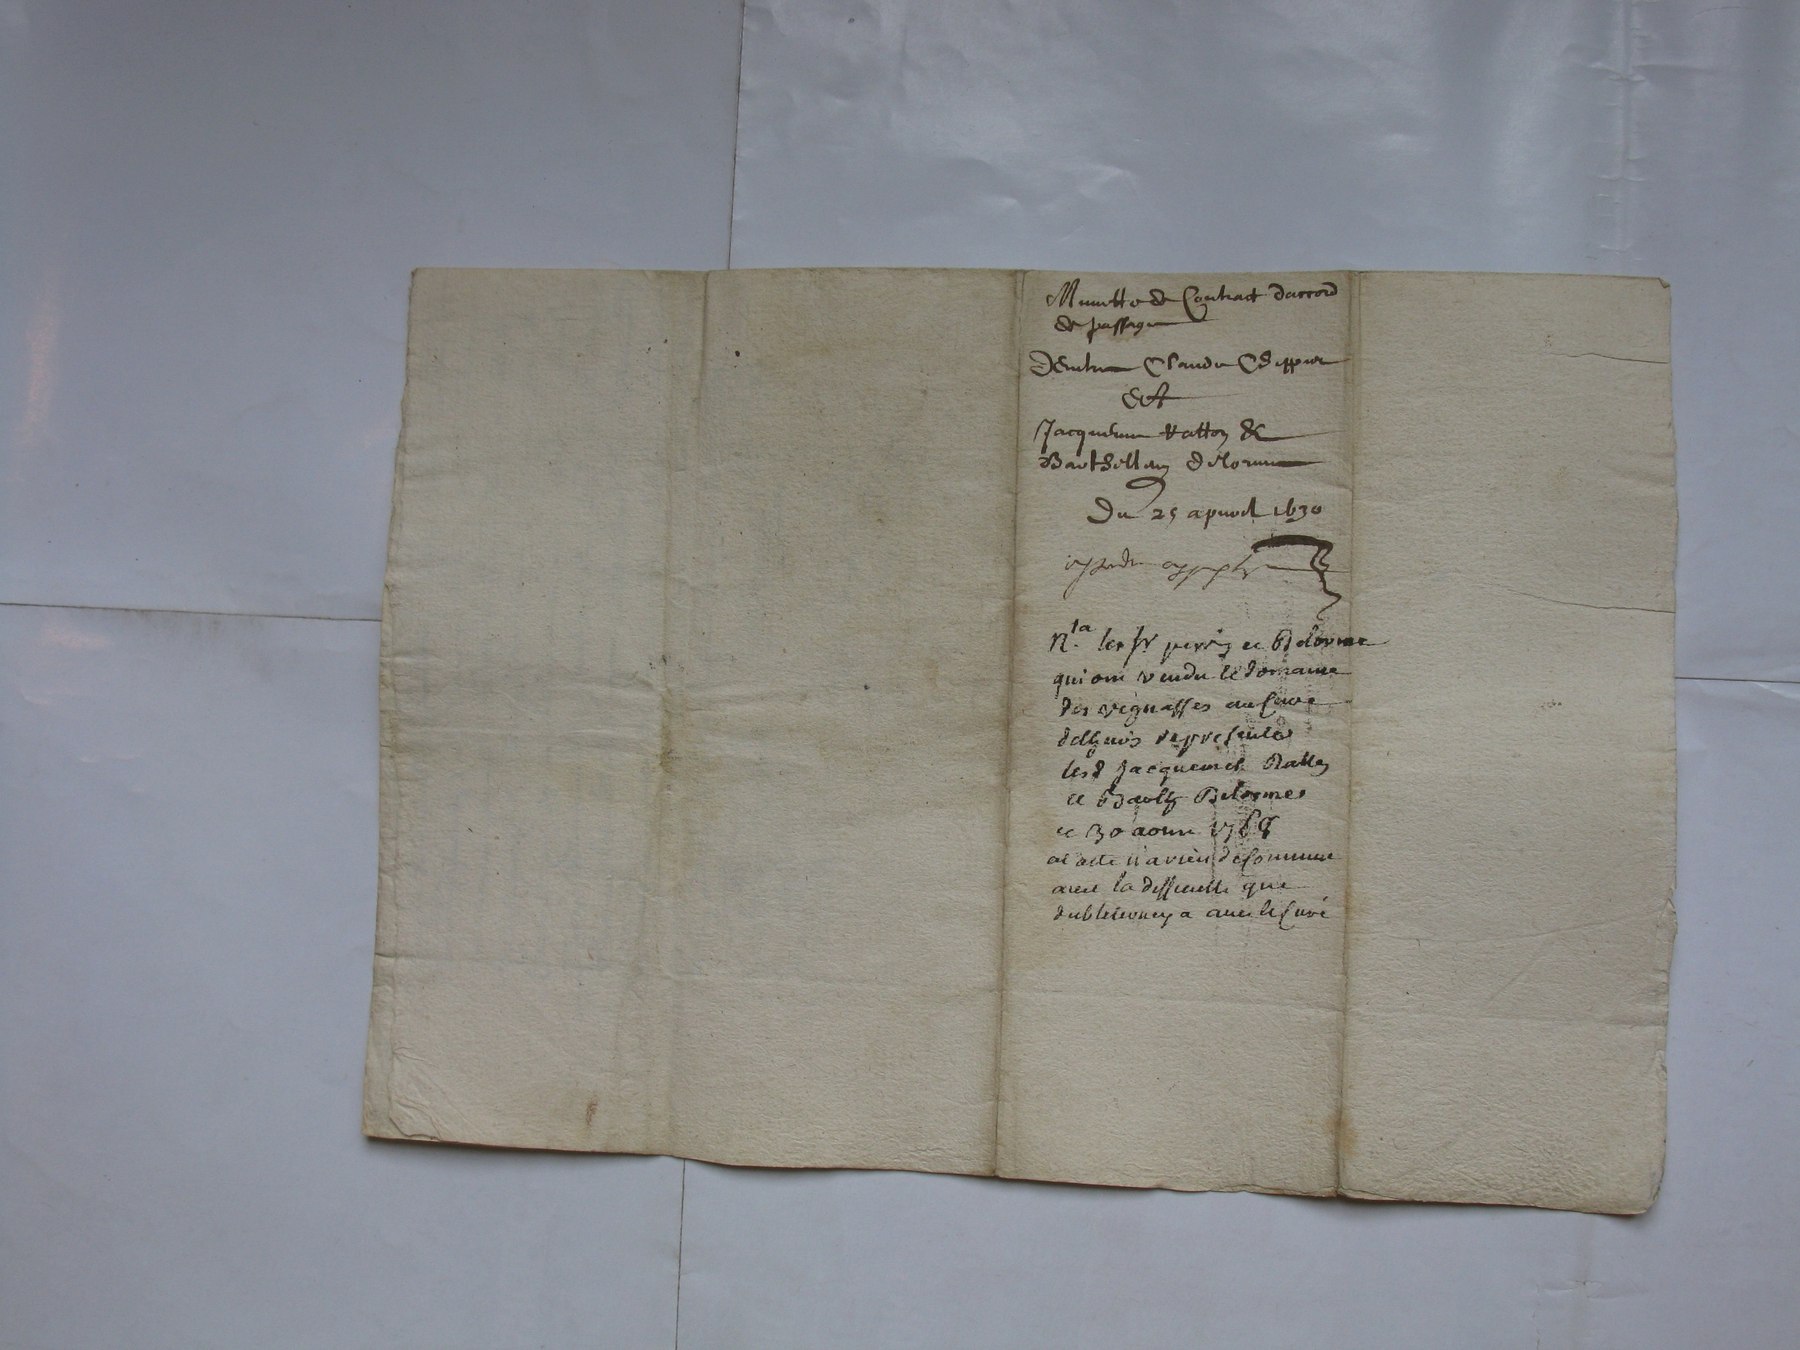 Minutte de Contract daccord
de passage
Dentre Claude
Et
Jacquemin Ratton &
Barthellemy delorme
Du 25 apvril 1630
Nta les sr perrin et Delorme
qui ont vendu le domaine
des vignasses au Curé
representes
lesd Jacquemet Ratton
et Barthy Delormes
ce 30 aoust 1768
cet acte n'a rien de Commun
avec la difficulté que
a avec le Curé